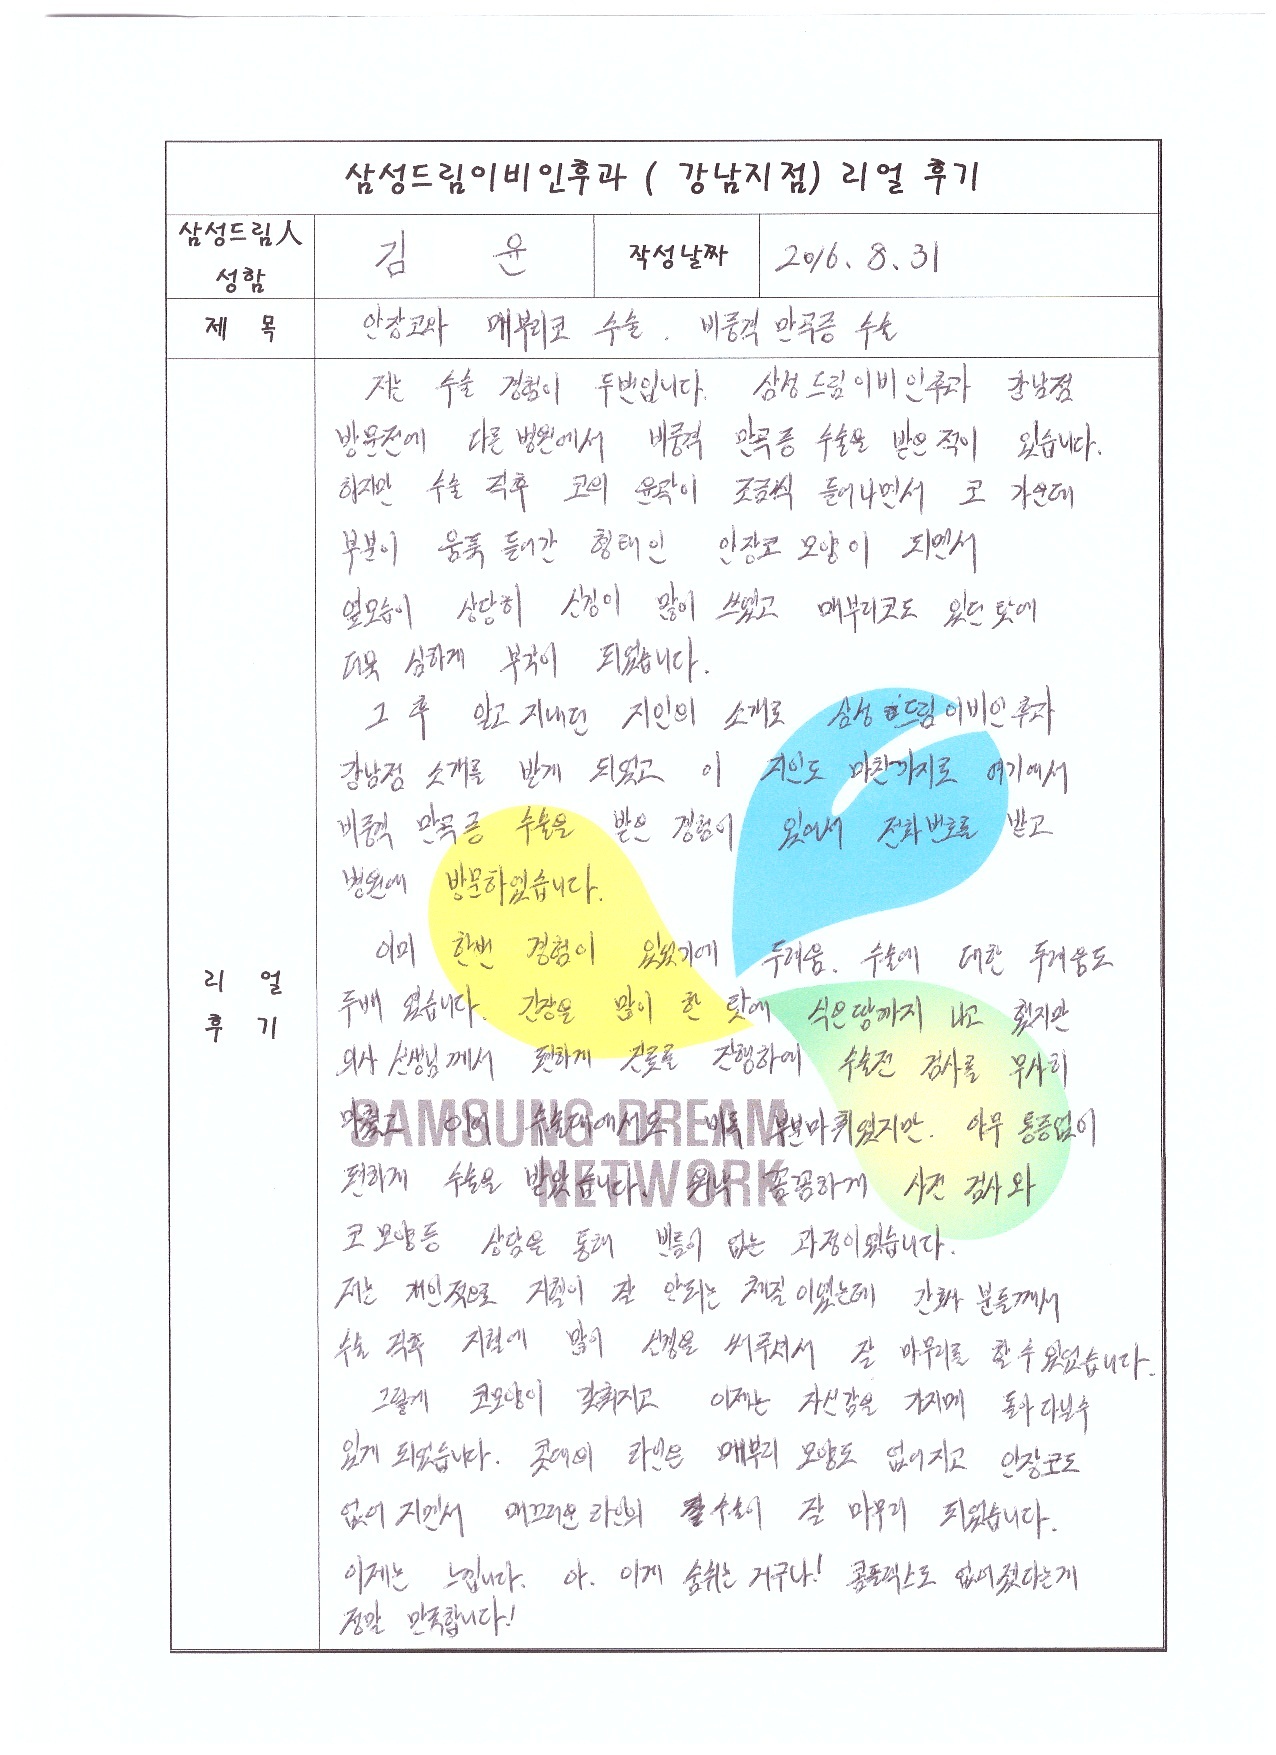 삼성드림이비인후과 ( 강남지점) 리얼 후기
삼성드림人 성함
김 윤
작성날짜
2016. 8. 31
제 목
안장코와 매부리코 수술. 비중격 만곡증 수술
리 얼 후 기
저는 수술 경험이 두번입니다. 삼성드림이비인후과 강남점
방문전에 다른 병원에서 비중격 만곡증 수술을 받은적이 있습니다.
하지만 수술 직후 코의 윤곽이 조금씩 들어나면서 코 가운데
부분이 움푹 들어간 형태인 안장코 모양이 되면서
옆모습이 상당히 신경이 많이 쓰였고 매부리코도 있던 탓에
더욱 심하게 부각이 되었습니다.
그 후 알고 지내던 지인의 소개로 삼성드림이비인후과
강남점 소개를 받게 되었고 이 지인도 마찬가지로 여기에서
비중격 만곡증 수술을 받은 경험이 있어서 전화번호를 받고
병원에 방문하였습니다.
이미 한번 경험이 있었기에 두려움. 수술에 대한 두려움도
두배 였습니다. 긴장을 많이 한 탓에 식은땀까지 나고 했지만
의사 선생님께서 편하게 진료를 진행하여 수술전 검사를 무사히
마쳤고 이어 수술대에서도 비록 부분마취였지만. 아무 통증없이
편하게 수술을 받았습니다. 워낙 꼼꼼하게 사전 검사와
코 모양등 상담을 통해 빈틈이 없는 과정이였습니다.
저는 개인적으로 지혈이 잘 안되는 체질이였는데 간호사 분들께서
수술 직후 지혈에 많이 신경을 써주셔서 잘 마무리를 할 수 있었습니다.
그렇게 코모양이 갖춰지고 이제는 자신감을 가지며 돌아다닐수
있게 되었습니다. 콧대의 라인은 매부리 모양도 없어지고 안장코도
없어 지면서 매끄러운 라인의 수술이 잘 마무리 되었습니다.
이제는 느낍니다. 아. 이게 숨쉬는 거구나! 콤플렉스도 없어졌다는게
정말 만족합니다!
SAMSUNG DREAM
NETWORK